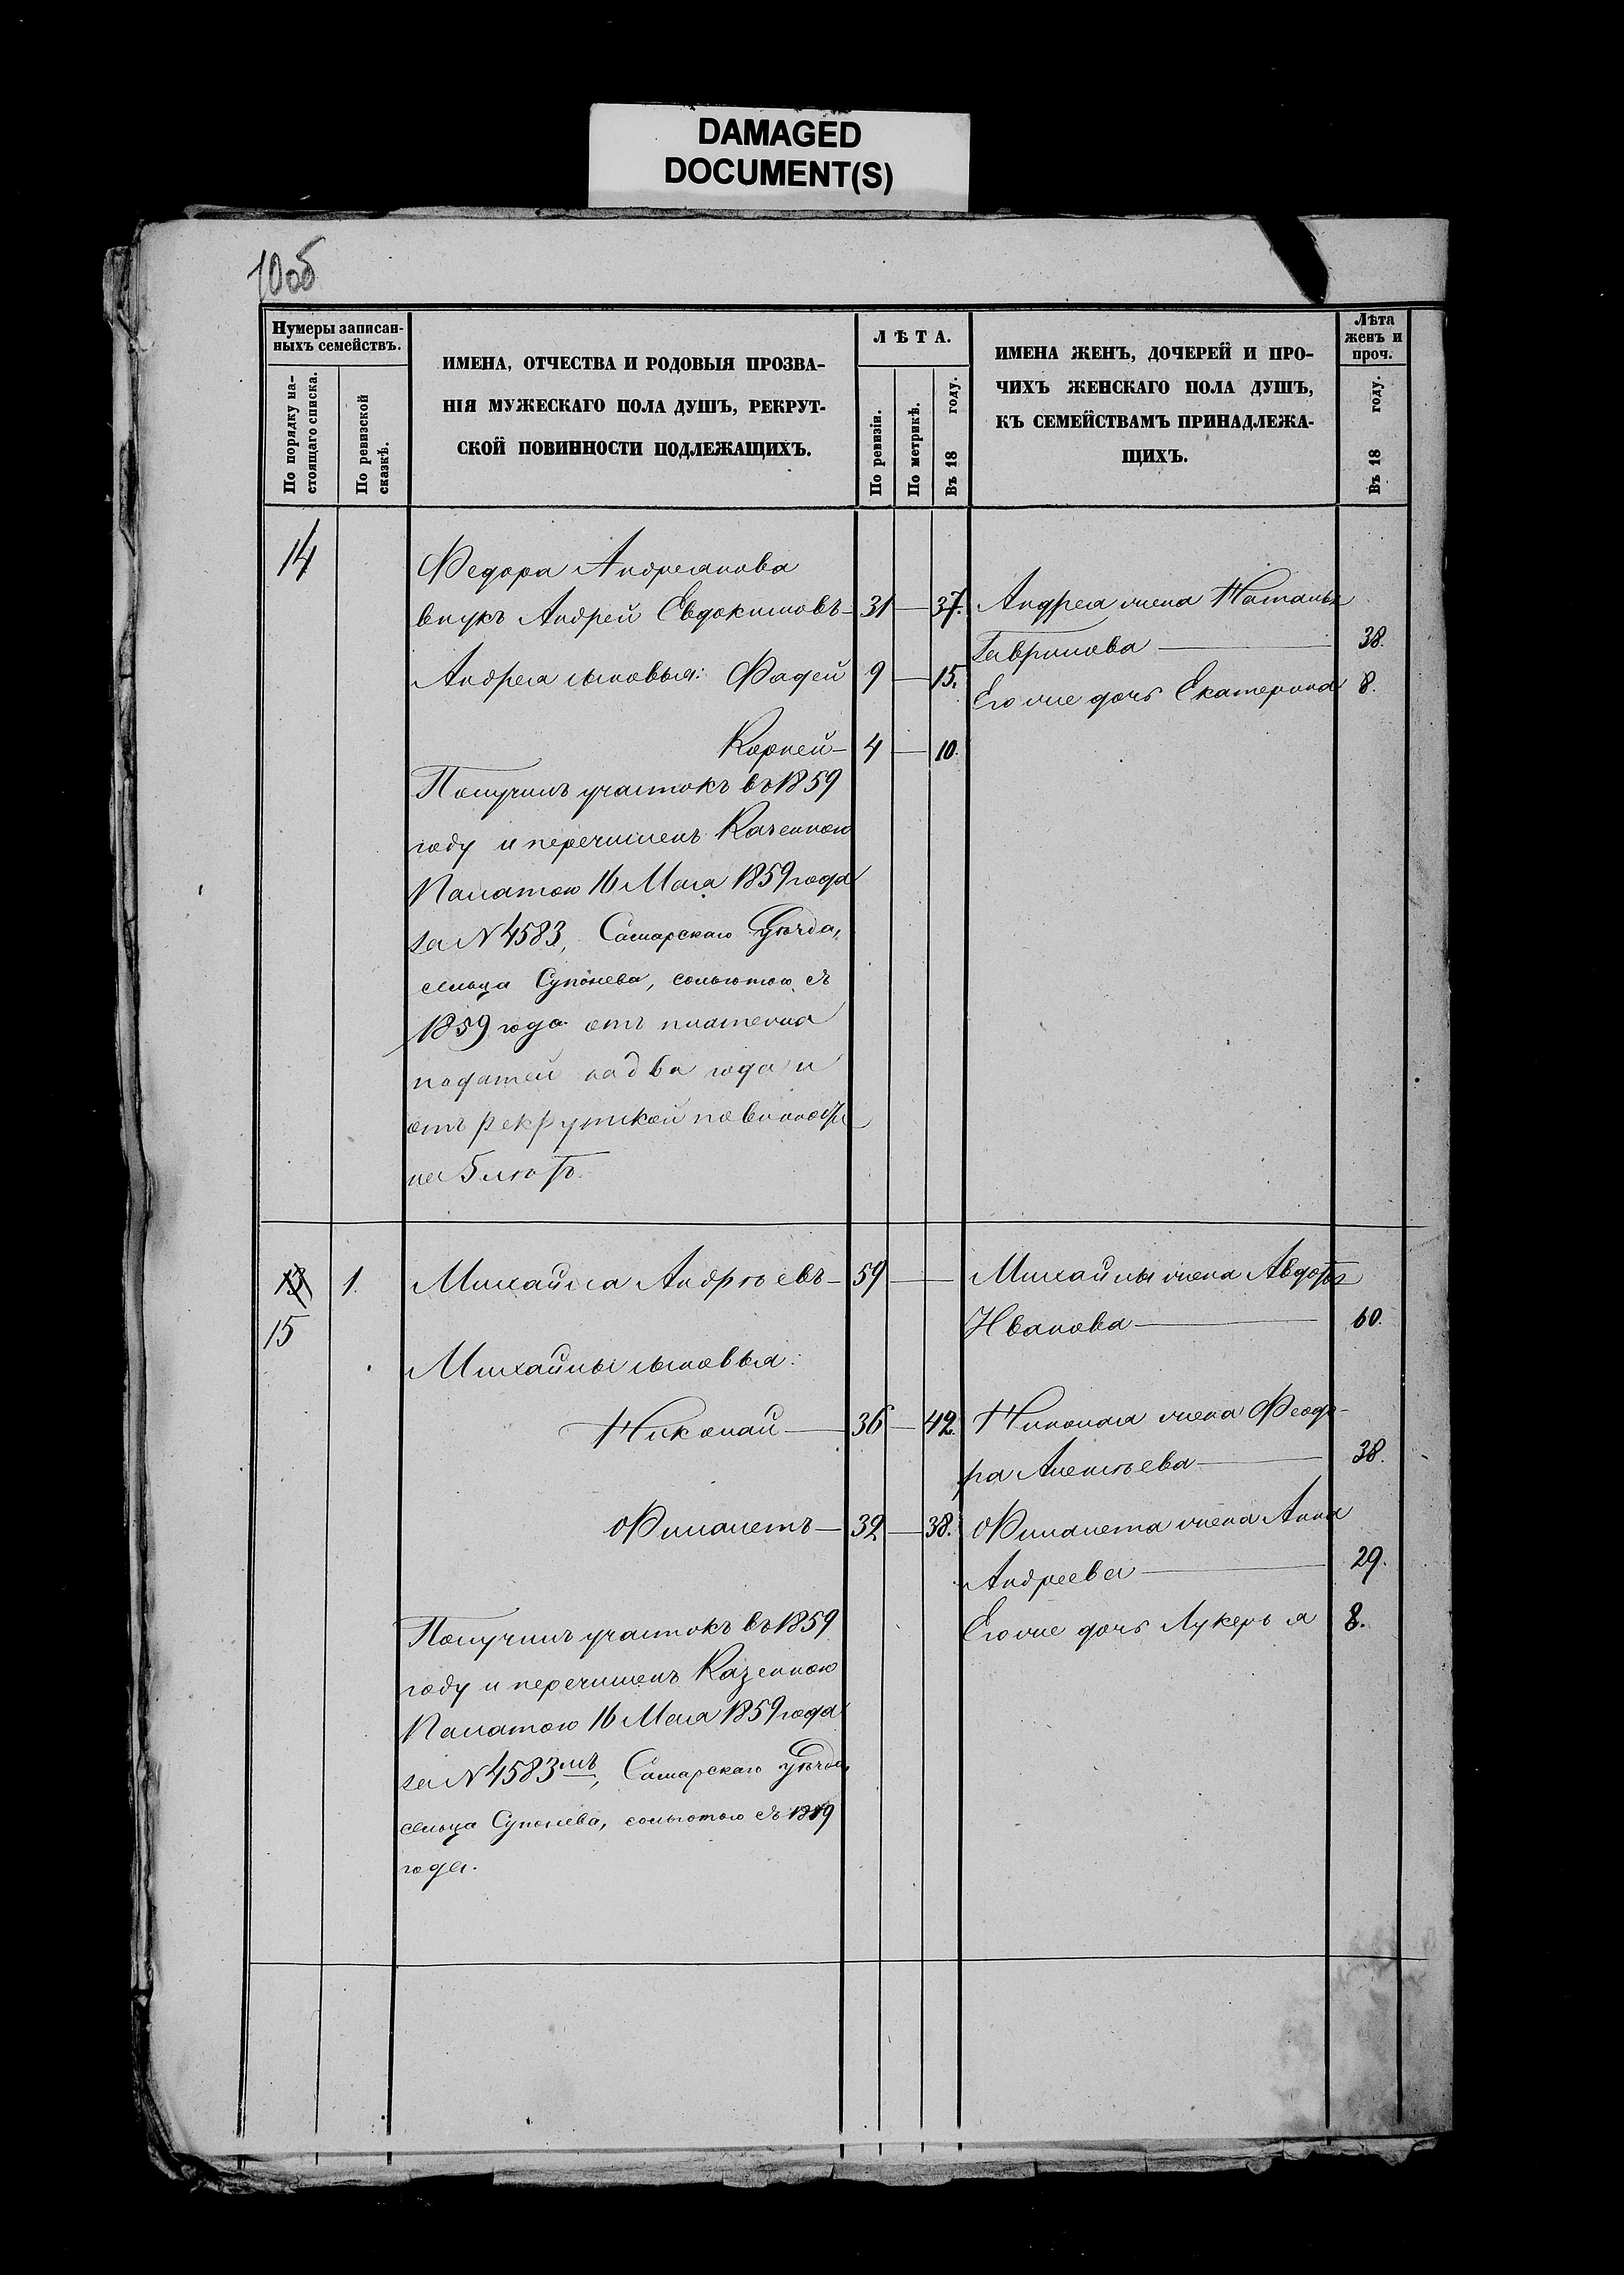 DAMAGED
DOCUMENT(S)
10об
Нумеры записан-
ныхъ семействъ.
По порядку на-
стоящаго списка.
По ревизской
сказкѣ.
ИМЕНА, ОТЧЕСТВА И РОДОВЫЯ ПРОЗВА-
НІЯ МУЖЕСКАГО ПОЛА ДУШЪ, РЕКРУТ-
СКОЙ ПОВИННОСТИ ПОДЛЕЖАЩИХЪ.
ЛѢТА.
По ревизіи.
По метрикѣ.
Въ 18 году.
ИМЕНА ЖЕНЪ, ДОЧЕРЕЙ И ПРО-
ЧИХЪ ЖЕНСКАГО ПОЛА ДУШЪ,
КЪ СЕМЕЙСТВАМЪ ПРИНАДЛЕЖА-
ЩИХЪ.
Лѣта
женъ и
проч.
Въ 18 году.
14
Федора Андреянова
внукъ Андрей Евдокимовъ — 31 — 37.
Андрея сыновья: Фадей 9 — 15.
Корней — 4 — 10.
Получилъ участокъ въ 1859
году и перечисленъ Казенною
Палатою 16 Мая 1859 года
за N 4583, Самарскаго Уѣзда,
сельца Супонева, сольготою съ
1859 года отъ платежа
податей на два года и
отъ рекрутской повинности
на 5 лѣтъ.
Андрея жена Наталья
Гаврилова — 38.
Его же дочь Екатерина 8.
15
1.
Михайла Андрѣевъ — 59 —
Михайлы сыновья:
Николай — 36 — 42.
Филалетъ — 32 — 38.
Получилъ участокъ въ 1859
году и перечисленъ Казенною
Палатою 16 Мая 1859 года
за N 4583мъ, Самарскаго уѣзда,
сельца Супонева, сольготою съ 1859
года.
Михайлы жена Авдотья
Иванова — 60.
Николая жена Феодо-
ра Алексѣева — 38.
Филалета жена Анна
Андреева — 29.
Его же дочь Лукерья 8.